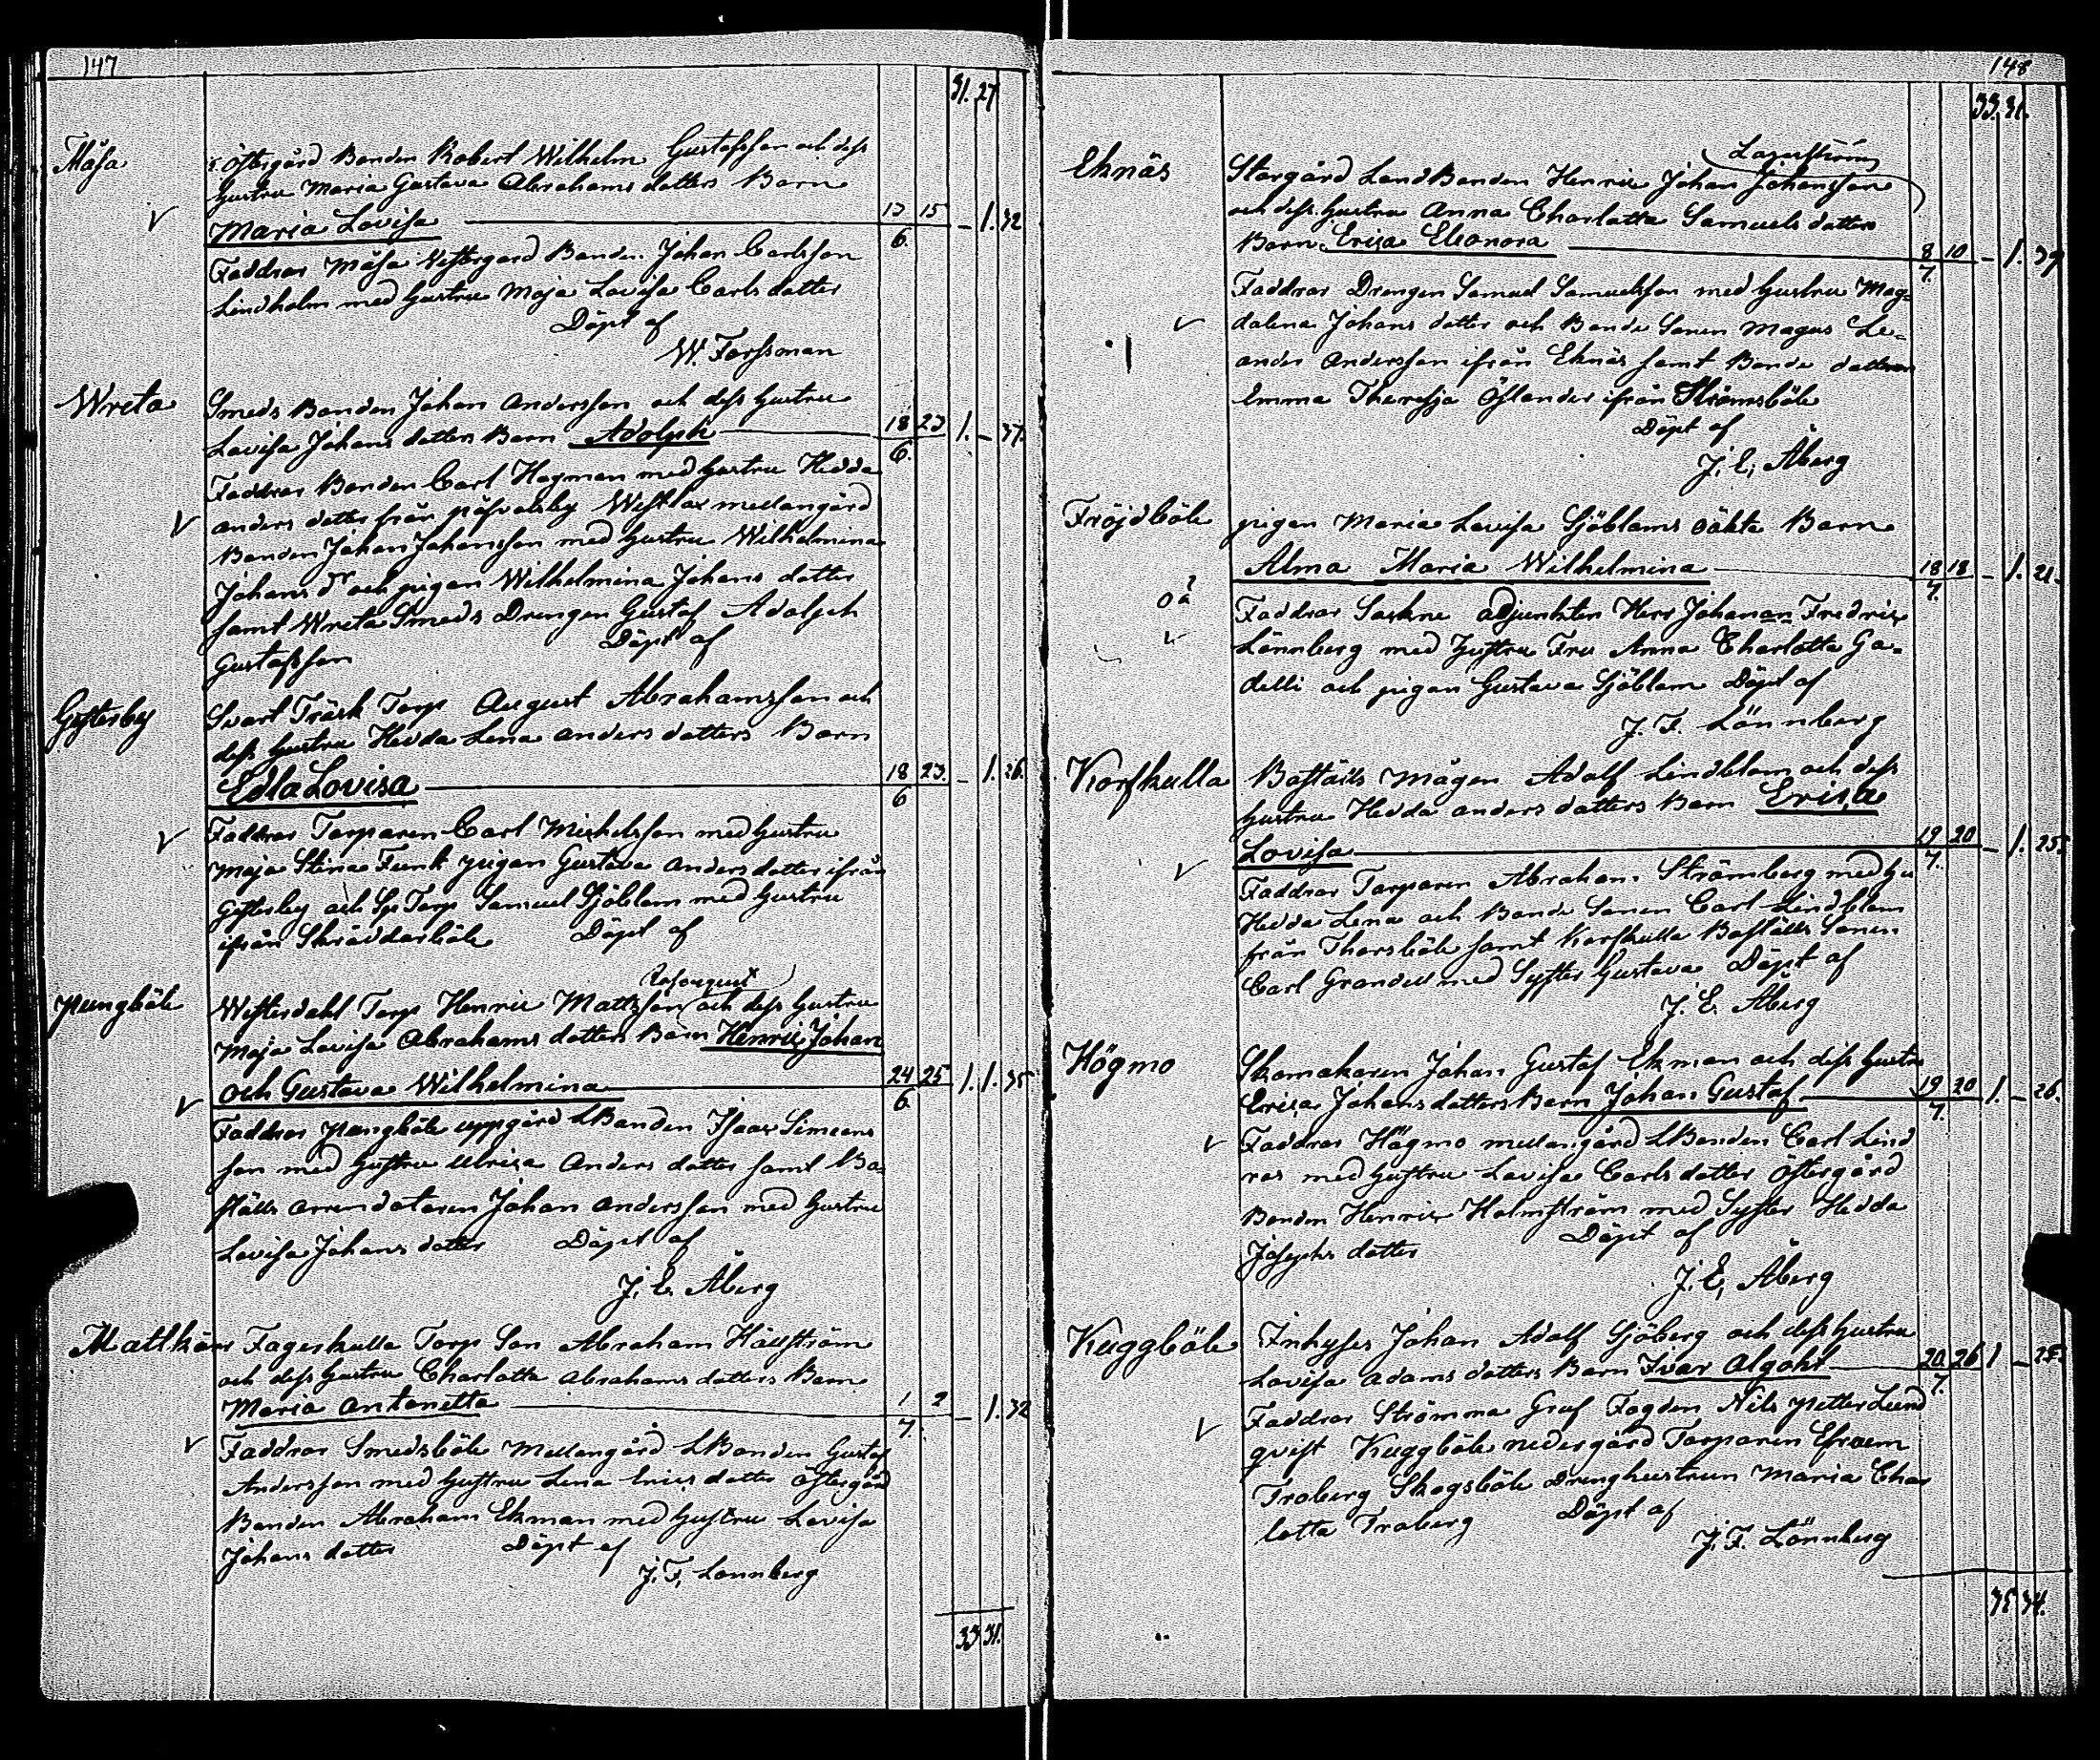 147
31. 27
Måsa
Östergård Bonden Robert Wilhelm Gustafsson och dess
hustru Maria Gustava Abrahams dotters Barn
Maria Lovisa 13 15 – 1. 32
6.
Faddrar Måsa Vestergård Bonden Johan Carlsson
Lindholm med hustru Maja Lovisa Carls dotter
Döpt af
W. Forssman
Wreta
Smeds Bonden Johan Andersson och dess hustru
Lovisa Johans dotters Barn Adolph 18 23 1. – 37.
6.
Faddrar Bonden Carl Hagman med hustru Hedda
Anders dotter från Westlax mellangård
Bonden Johan Johansson med hustru Wilhelmina
Johans dr och pigan Wilhelmina Johans dotter
samt Wreta Smeds Drengen Gustaf Adolph
Gustafsson Döpt af
Gesterby
Svart Träsk Torp August Abrahamsson och
dess hustru Hedda Lena Anders dotters Barn
Edla Lovisa 18 23. – 1. 26.
6
Faddrar Torparen Carl Michelsson med hustru
Maja Stina Funk pigan Gustava Anders dotter ifrån
Gesterby och Sp Torp Samuel Sjöblom med hustru
ifrån Skräddarböle Döpt af
Pungböle
Westerdahl Torp Henric Mattsson och dess hustru
Maja Lovisa Abrahams dotters Barn Henric Johan
och Gustava Wilhelmina 24 25 1. 1. 35
6
Faddrar Pungböle uppgård LBonden Isaac Simeons
son med hustru Ulrica Anders dotter samt Bo
ställs arrendatoren Johan Andersson med hustru
Lovisa Johans dotter Döpt af
J. E. Åberg
Mattkärr
Fagerkulla Torp Son Abraham Hällström
och dess hustru Charlotta Abrahams dotters Barn
Maria Antonetta 1 2 – 1. 32
7.
Faddrar Smedsböle Mellangård LBonden Gustaf
Andersson med hustru Lena Erics dotter Östergård
Bonden Abraham Ekman med hustru Lovisa
Johans dotter Döpt af
J. F. Lönnberg
33 31.
148
33. 31.
Eknäs
Lagerström
Storgård LandBonden Henric Johan Johansson
och dess hustru Anna Charlotta Samuels dotters
Barn Erica Eleonora 8 10 – 1. 39
7.
Faddrar Drengen Samuel Samuelsson med hustru Mag=
dalena Johans dotter och Bonde Sonen Magus Le=
ander Andersson ifrån Eknäs samt Bonde dottren
Emma Theresia Öslander ifrån Strömsböle
Döpt af
J. E. Åberg
Fröjdböle
pigan Maria Lovisa Sjöbloms oäkta Barn
Alma Maria Wilhelmina 18 18 – 1. 21.
7.
oä
Faddrar Sockne adjunkten Herr Johan Fredric
Lönnberg med hustru Fru Anna Charlotta Ga=
delli och pigan Gustava Sjöblom Döpt af
J. F. Lönnberg
Korfkulla
Boställs mågen Adolf Lindblom och dess
hustru Hedda Anders dotters Barn Erica
Lovisa 19 20 – 1. 25
7.
Faddrar Torparen Abraham Strömberg med hu
Hedda Lena och Bonde Sonen Carl Lindblom
från Thorsböle samt Korfkulla Boställs Sonen
Carl Grandell med Syster Gustava Döpt af
J. E. Åberg
Högmo
Skomakaren Johan Gustaf Ekman och dess hustru
Erica Johans dotters Barn Johan Gustaf 19 20 1. – 26.
7.
Faddrar Högmo mellangård LBonden Carl Lind
ros med hustru Lovisa Carls dotter Östergård
Bonden Henric Holmström med Syster Hedda
Josephs dotter Döpt af
J. E. Åberg
Kuggböle
Inhyses Johan Adolf Sjöberg och dess hustru
Lovisa Adams dotters Barn Ivar Algoht 20 26 1 –
7.
Faddrar Strömma Fogden Nils Petter Lund
qvist Kuggböle nedergård Torparen Efraem
Troberg Skogsböle Drenghustrun Maria Char
lotta Troberg Döpt af
J. F. Lönnberg
35 34.